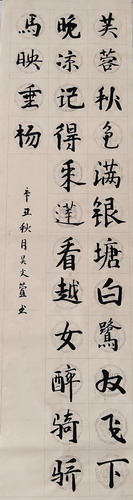 芙蓉秋色满银塘白鹭双飞下
晚凉记得采莲看越女醉骑骄
马映垂杨
辛丑秋月吴文萱书